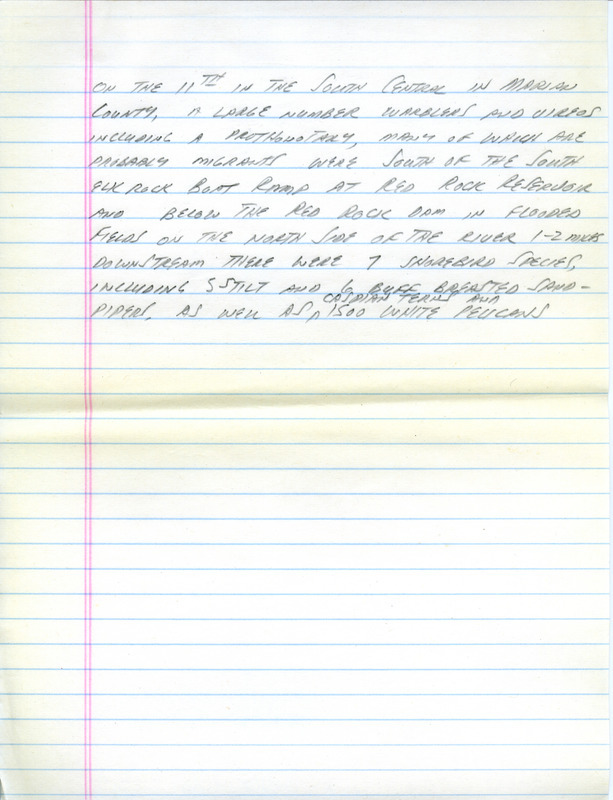 ON THE 11TH IN THE SOUTH CENTRAL IN MARIAN
COUNTY, A LARGE NUMBER WARBLERS AND VIREOS
INCLUDING A PROTHONOTARY, MANY OF WHICH ARE
PROBABLY MIGRANTS WERE SOUTH OF THE SOUTH
ELK ROCK BOAT RAMP AT RED ROCK RESERVOIR
AND BELOW THE RED ROCK DAM IN FLOODED
FIELDS ON THE NORTH SIDE OF THE RIVER 1-2 MILES
DOWNSTREAM THERE WERE 7 SHOREBIRD SPECIES,
INCLUDING 5 STILT AND 6 BUFF BREASTED SAND-
CASPIAN TERNS AND
PIPERS, AS WELL AS 1500 WHITE PELICANS